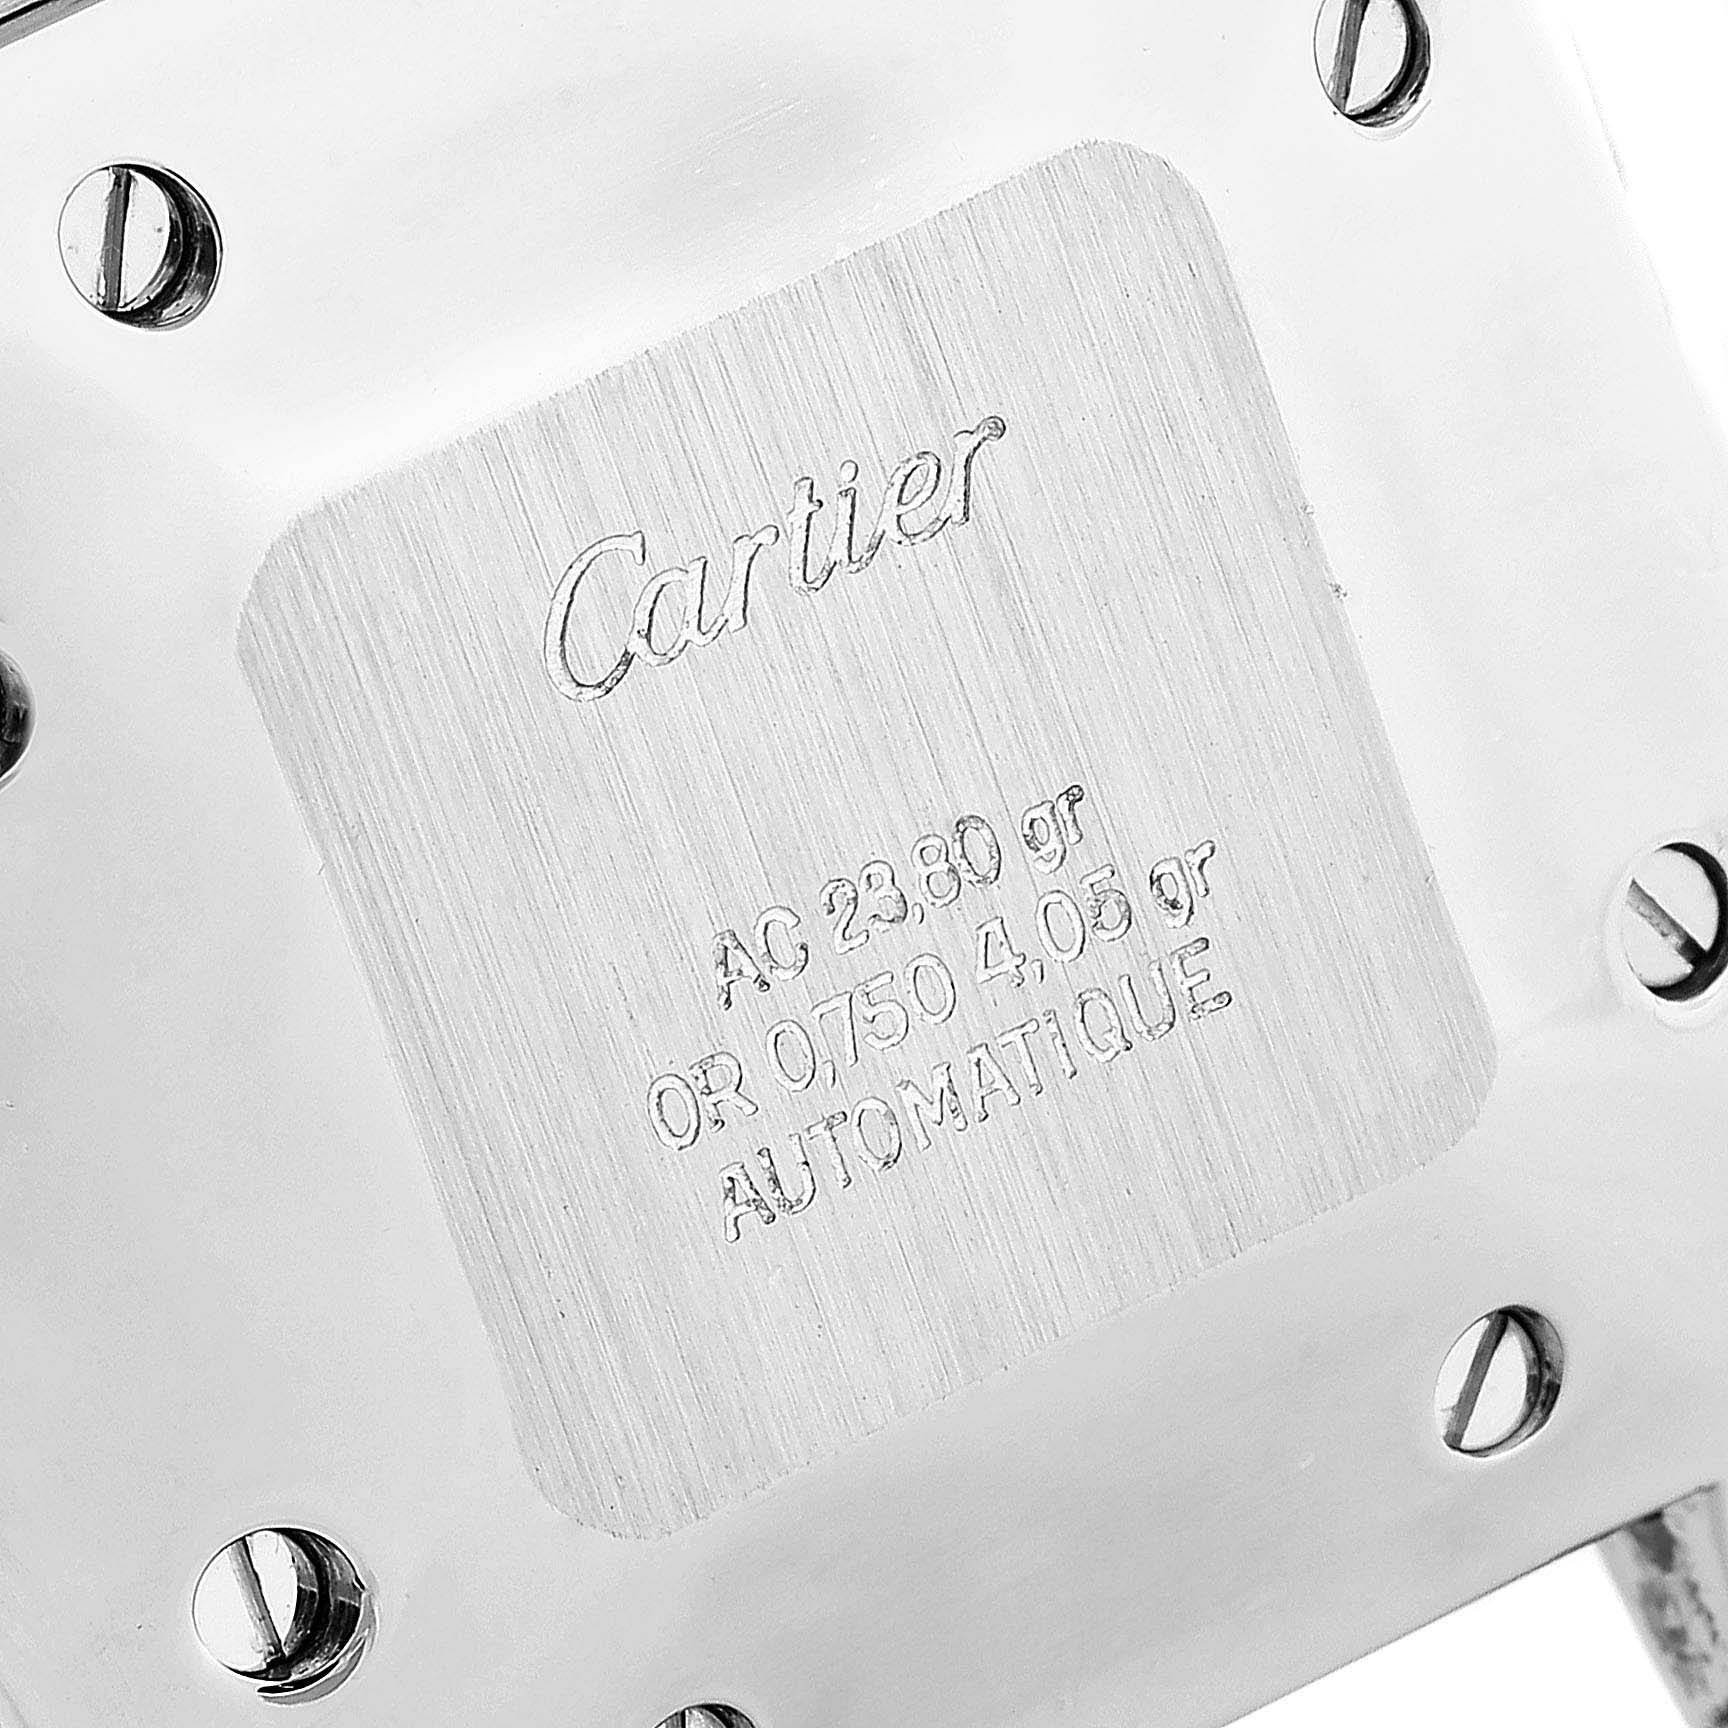 Cartier
AC 23,80 gr
OR 0,750 4,05 gr
AUTOMATIQUE